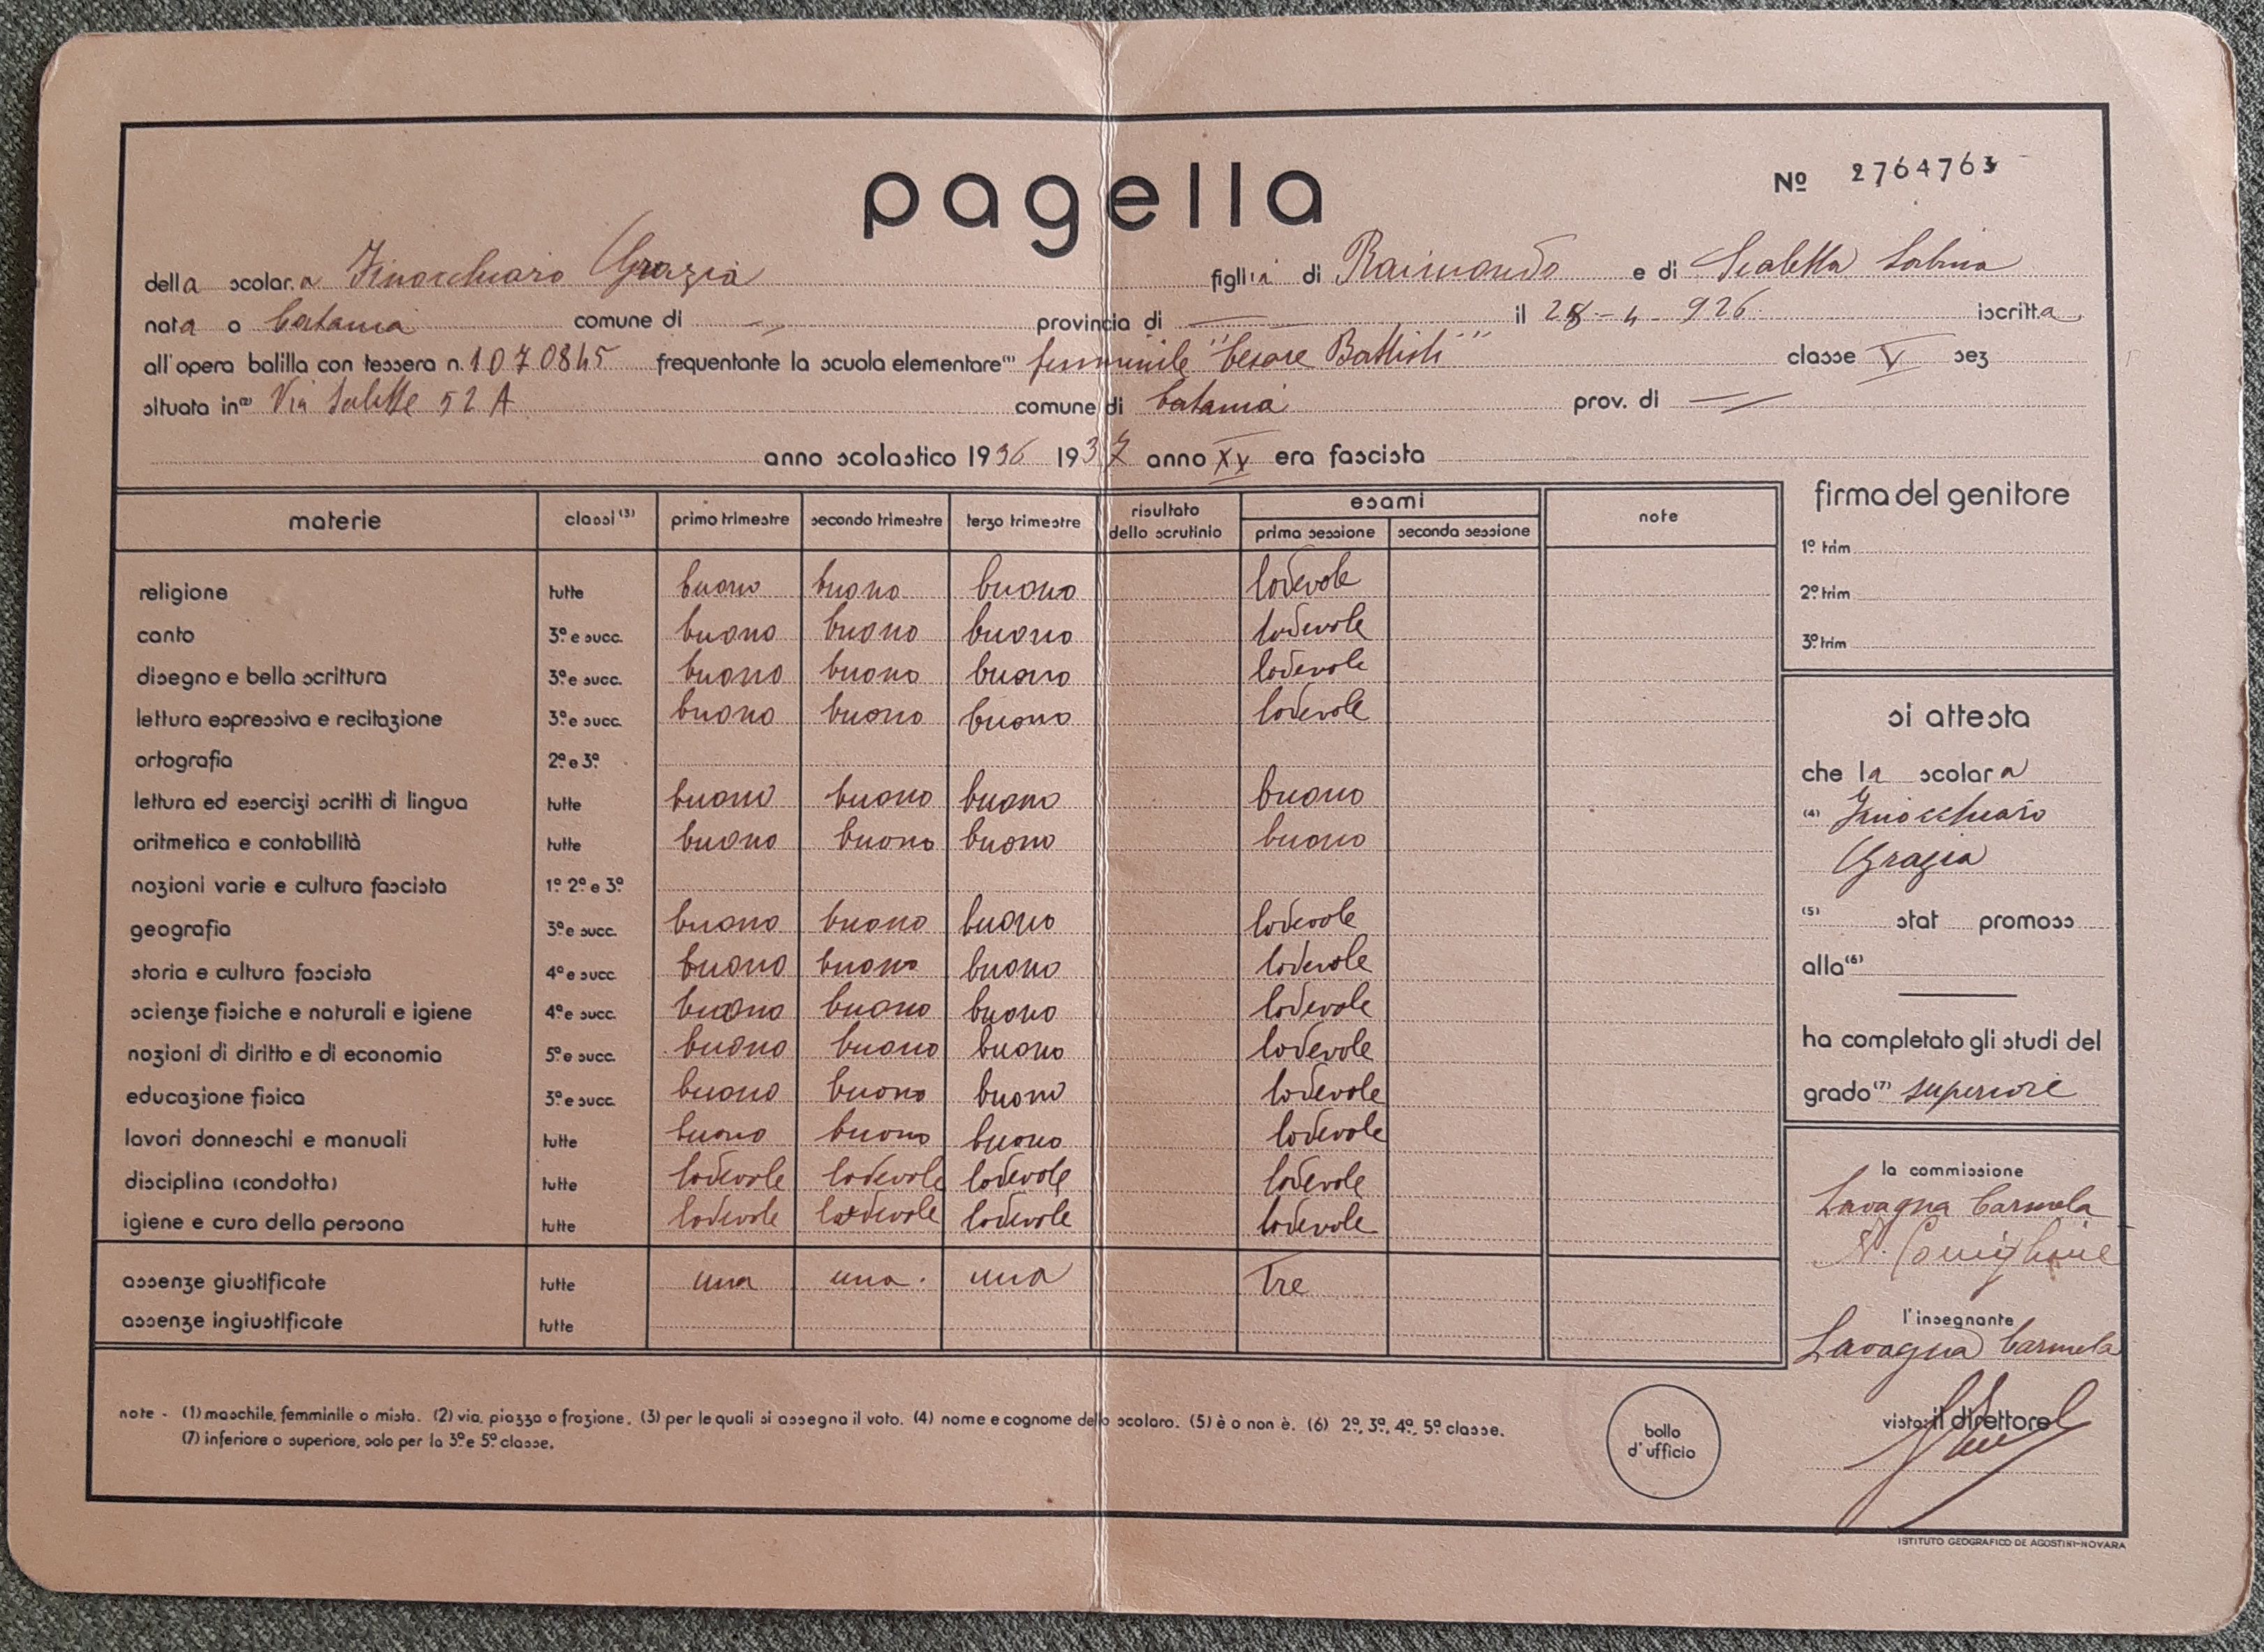 pagella
Nº 2764763
della scolara Finocchiaro Grazia figlia di Raimondo e di Scaletta Sabina
nata a Catania comune di provincia di il 28-4-926 iscritta
all'opera balilla con tessera n. 1070845 frequentante la scuola elementare (1) femminile "Cesare Battisti" classe V sez
situata in (2) Via Salette 52 A comune di Catania prov. di
anno scolastico 1936 1937 anno XV era fascista
materie classi (3) primo trimestre secondo trimestre terzo trimestre risultato dello scrutinio esami prima sessione seconda sessione note
religione tutte buono buono buono lodevole
canto 3ª e succ. buono buono buono lodevole
disegno e bella scrittura 3ª e succ. buono buono buono lodevole
lettura espressiva e recitazione 3ª e succ. buono buono buono lodevole
ortografia 2ª e 3ª
lettura ed esercizi scritti di lingua tutte buono buono buono buono
aritmetica e contabilità tutte buono buono buono buono
nozioni varie e cultura fascista 1ª 2ª e 3ª
geografia 3ª e succ. buono buono buono lodevole
storia e cultura fascista 4ª e succ. buono buono buono lodevole
scienze fisiche e naturali e igiene 4ª e succ. buono buono buono lodevole
nozioni di diritto e di economia 5ª e succ. buono buono buono lodevole
educazione fisica 3ª e succ. buono buono buono lodevole
lavori donneschi e manuali tutte buono buono buono lodevole
disciplina (condotta) tutte lodevole lodevole lodevole lodevole
igiene e cura della persona tutte lodevole lodevole lodevole lodevole
assenze giustificate tutte una una. una Tre
assenze ingiustificate tutte
firma del genitore
1º trim
2º trim
3º trim
si attesta
che la scolara
(4) Finocchiaro
Grazia
(5) stat promoss
alla (6)
ha completato gli studi del
grado (7) superiore
la commissione
Lavagna Carmela
l'insegnante
Lavagna Carmela
visto: il direttore
note - (1) maschile, femminile o mista. (2) via, piazza o frazione. (3) per le quali si assegna il voto. (4) nome e cognome dello scolaro. (5) è o non è. (6) 2ª, 3ª, 4ª, 5ª classe.
(7) inferiore o superiore, solo per la 3ª e 5ª classe.
bollo
d'ufficio
ISTITUTO GEOGRAFICO DE AGOSTINI-NOVARA